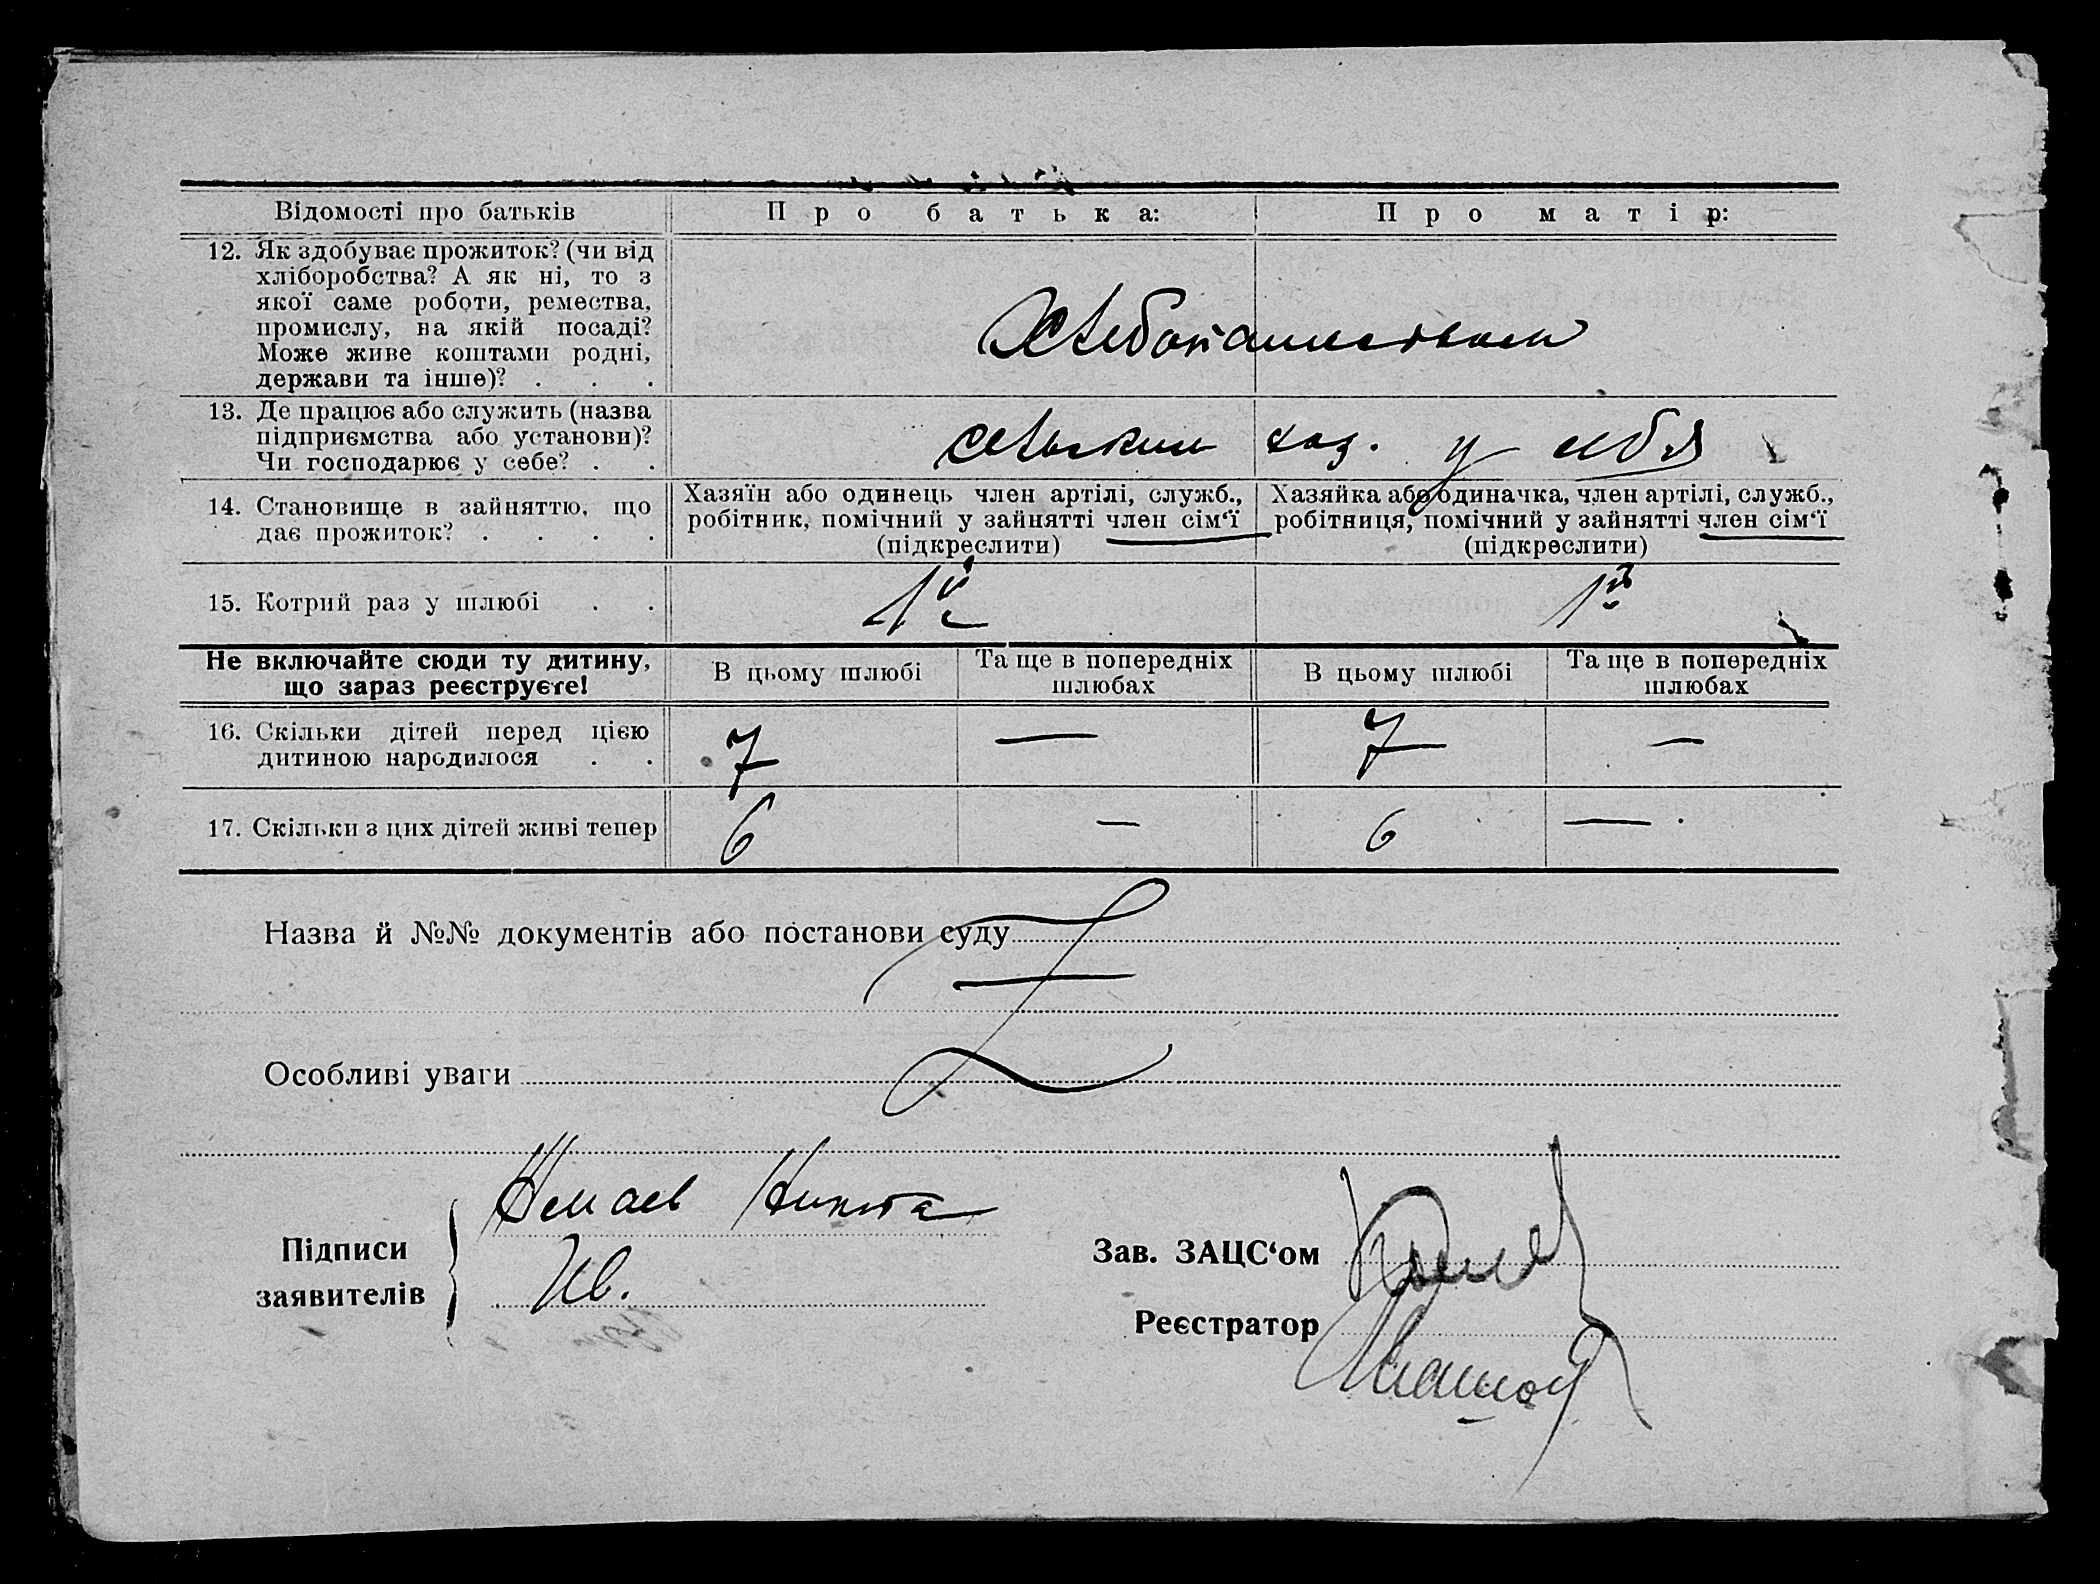 Відомості про батьків
Про батька:
Про матір:
12. Як здобуває прожиток? (чи від
хліборобства? А як ні, то з
якої саме роботи, ремества,
промислу, на якій посаді?
Може живе коштами родні,
держави та інше)? . . .
Хлебопашеством
13. Де працює або служить (назва
підприємства або установи)?
Чи господарює у себе? . .
сельским хоз. у себя
14. Становище в зайняттю, що
дає прожиток? . . . .
Хазяїн або одинець член артілі, служб.,
робітник, помічний у зайнятті член сім‘ї
(підкреслити)
Хазяйка або одиначка, член артілі, служб.,
робітниця, помічний у зайнятті член сім‘ї
(підкреслити)
15. Котрий раз у шлюбі . .
1й
1й
Не включайте сюди ту дитину,
що зараз реєструєте!
В цьому шлюбі
Та ще в попередніх
шлюбах
В цьому шлюбі
Та ще в попередніх
шлюбах
16. Скільки дітей перед цією
дитиною народилося . .
7 — 7 —
17. Скільки з цих дітей живі тепер
6 — 6 —
Назва й №№ документів або постанови суду
Особливі уваги
Підписи
заявителів
Никита
Ив.
Зав. ЗАЦС‘ом
Реєстратор